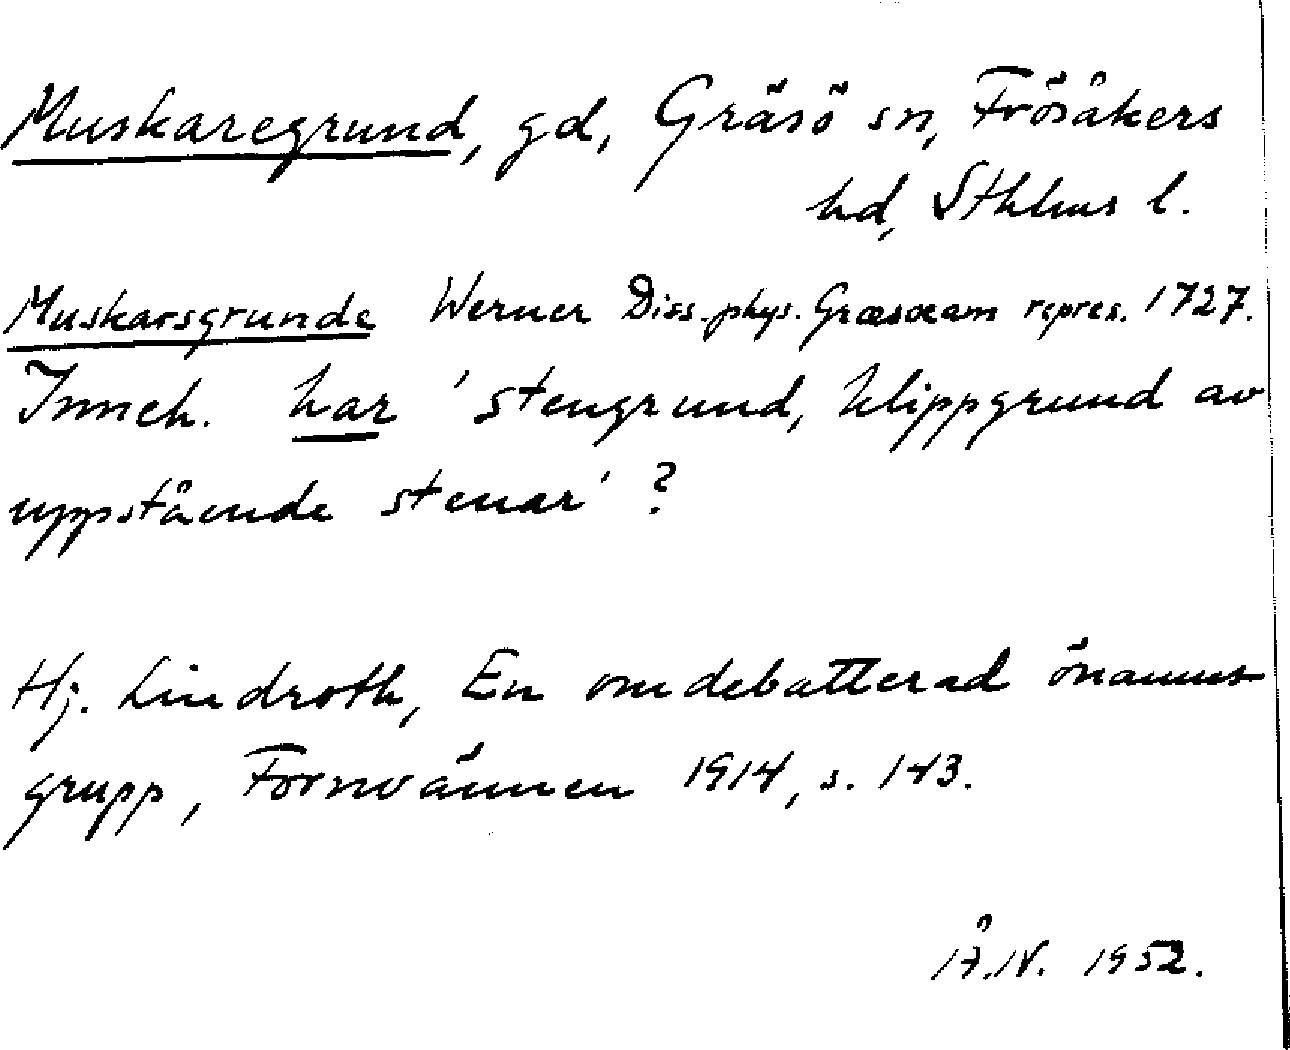 Muskaregrund, gd, Gräsö sn, Frösåkers
hd, Sthlms l.
Muskarsgrunde Werner Diss. phys. Græsœam repres. 1727.
Inneh. har 'stengrund, klippgrund av
uppstående stenar'?
Hj. Lindroth, En omdebatterad önamns-
grupp, Fornvännen 1914, s. 143.
Å.N. 1952.